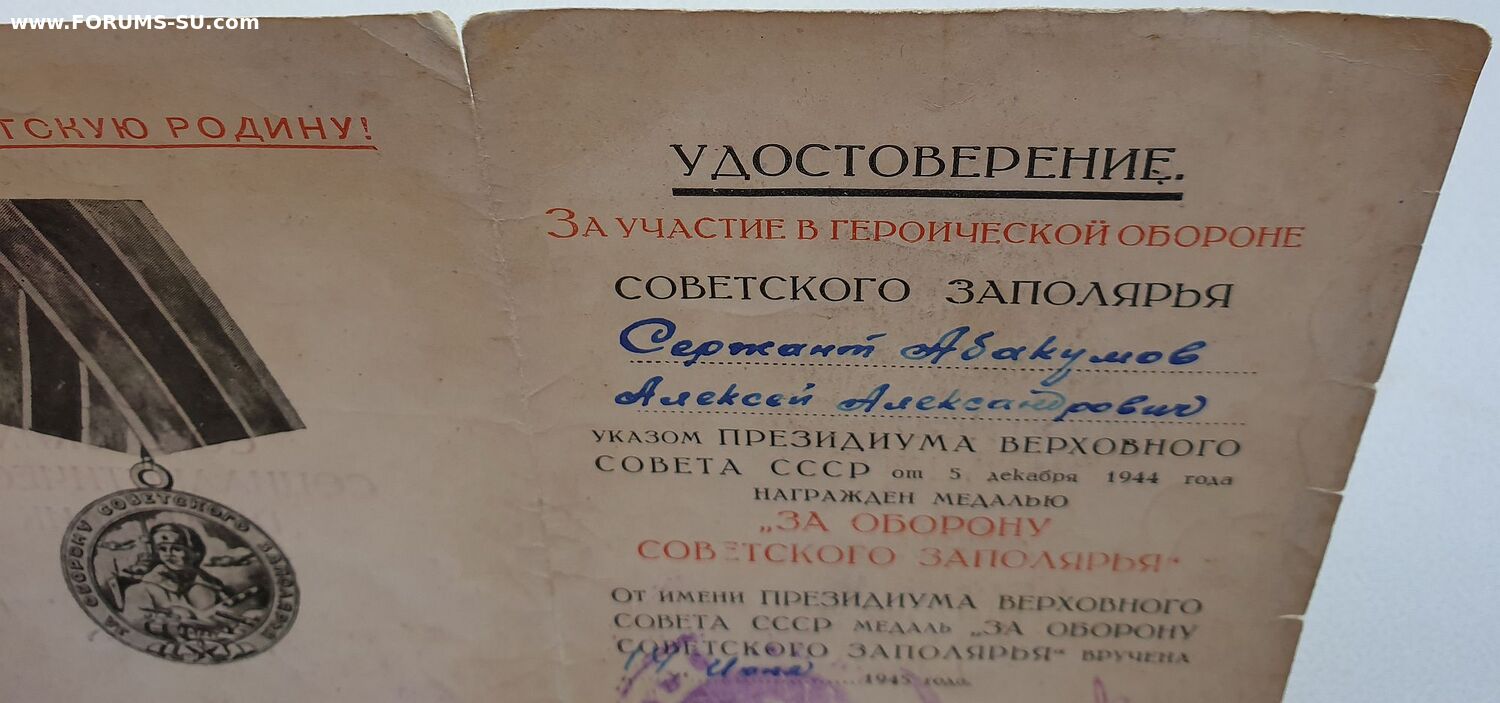 www.FORUMS-SU.com
ТСКУЮ РОДИНУ!
ЗА ОБОРОНУ СОВЕТСКОГО ЗАПОЛЯРЬЯ
УДОСТОВЕРЕНИЕ.
ЗА УЧАСТИЕ В ГЕРОИЧЕСКОЙ ОБОРОНЕ
СОВЕТСКОГО ЗАПОЛЯРЬЯ
Сержант Абакумов
Алексей Александрович
УКАЗОМ ПРЕЗИДИУМА ВЕРХОВНОГО
СОВЕТА СССР от 5 декабря 1944 года
НАГРАЖДЕН МЕДАЛЬЮ
„ЗА ОБОРОНУ
СОВЕТСКОГО ЗАПОЛЯРЬЯ“
ОТ ИМЕНИ ПРЕЗИДИУМА ВЕРХОВНОГО
СОВЕТА СССР МЕДАЛЬ „ЗА ОБОРОНУ
СОВЕТСКОГО ЗАПОЛЯРЬЯ“ ВРУЧЕНА
14 Июня 1945 года.